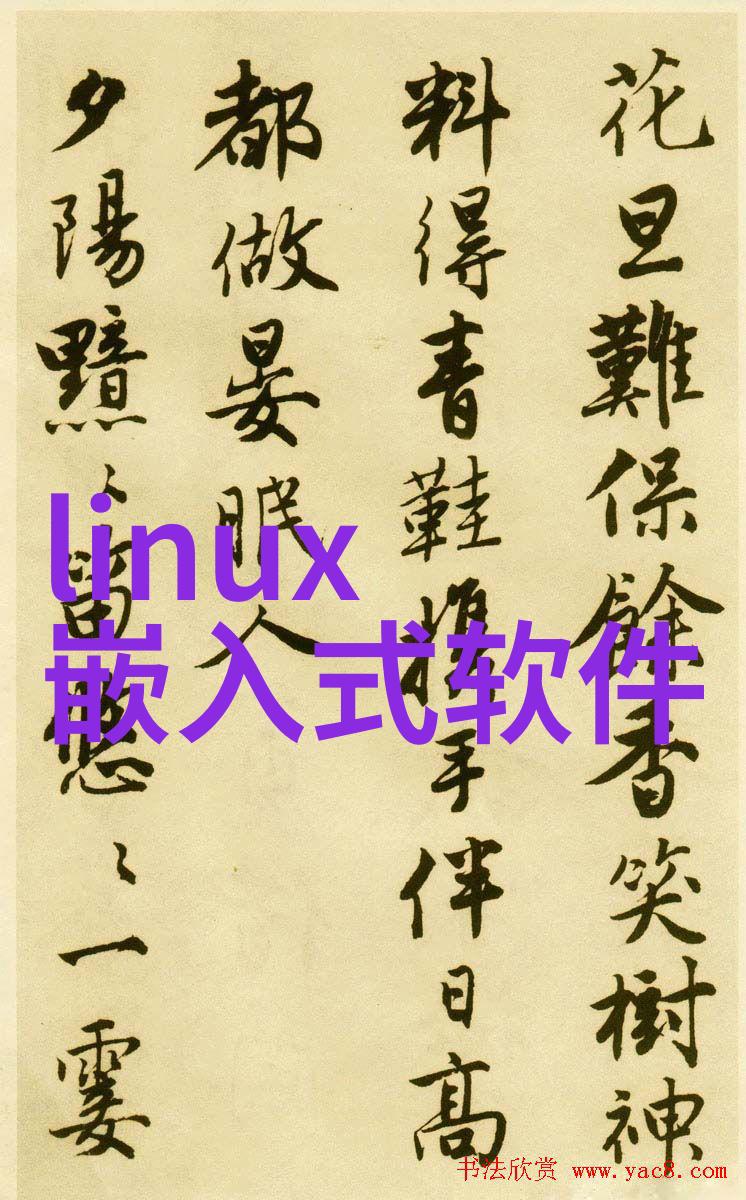 花旦難保餘香笑樹神
料得青鞋携手伴日高
都做晏眠人
夕陽黯〻留愁〻一霎
linux
嵌入式软件
书法欣赏 www.yac8.com